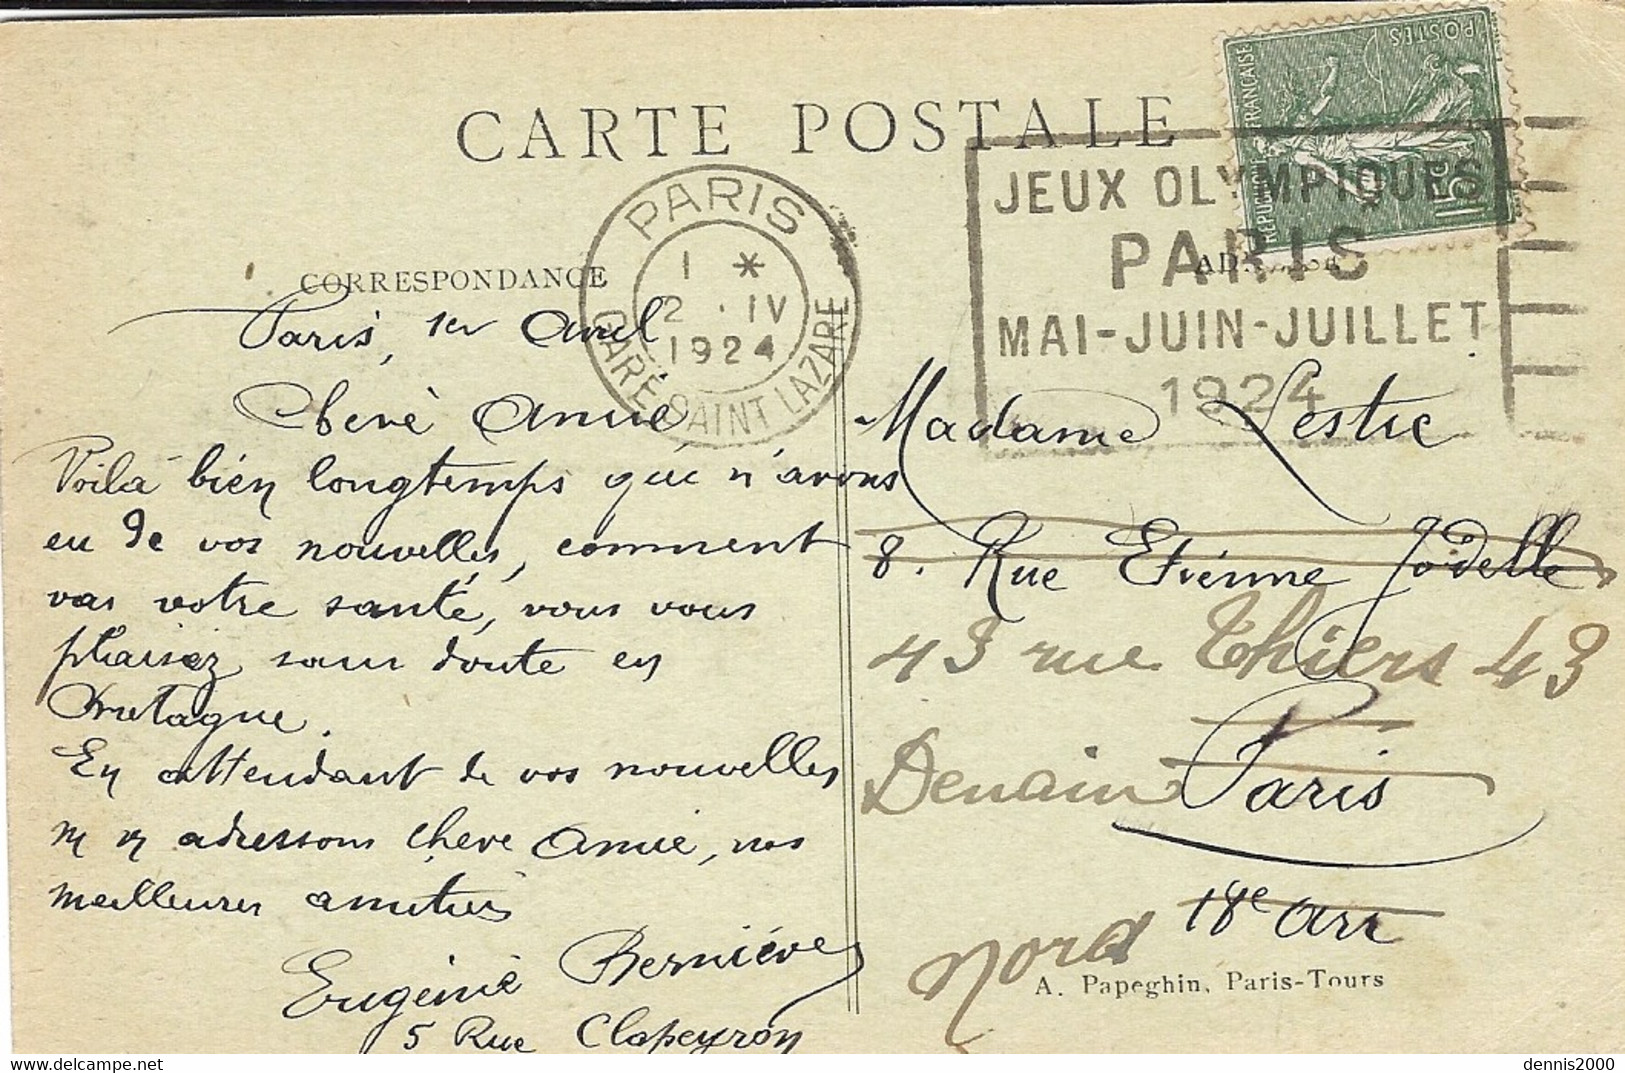 CARTE POSTALE
PARIS
1 *
2 · IV
1924
GARE SAINT LAZARE
JEUX OLYMPIQUES
PARIS
MAI-JUIN-JUILLET
1924
REPUBLIQUE FRANÇAISE
POSTES
15c
CORRESPONDANCE
Paris, 1er Avril
Chère Amie
Voilà bien longtemps que n'avons
eu de vos nouvelles, comment
vas votre santé, vous vous
plaisez sans doute en
Bretagne.
En attendant de vos nouvelles
adressons chère Amie, nos
meilleures amitiés
Eugénie
5 Rue Clapeyron
Madame Lestic
8. Rue Etienne Jodelle
43 rue Thiers 43
Denain Paris
18e Arr
Nord
A. Papeghin, Paris-Tours
delcampe.net
dennis2000